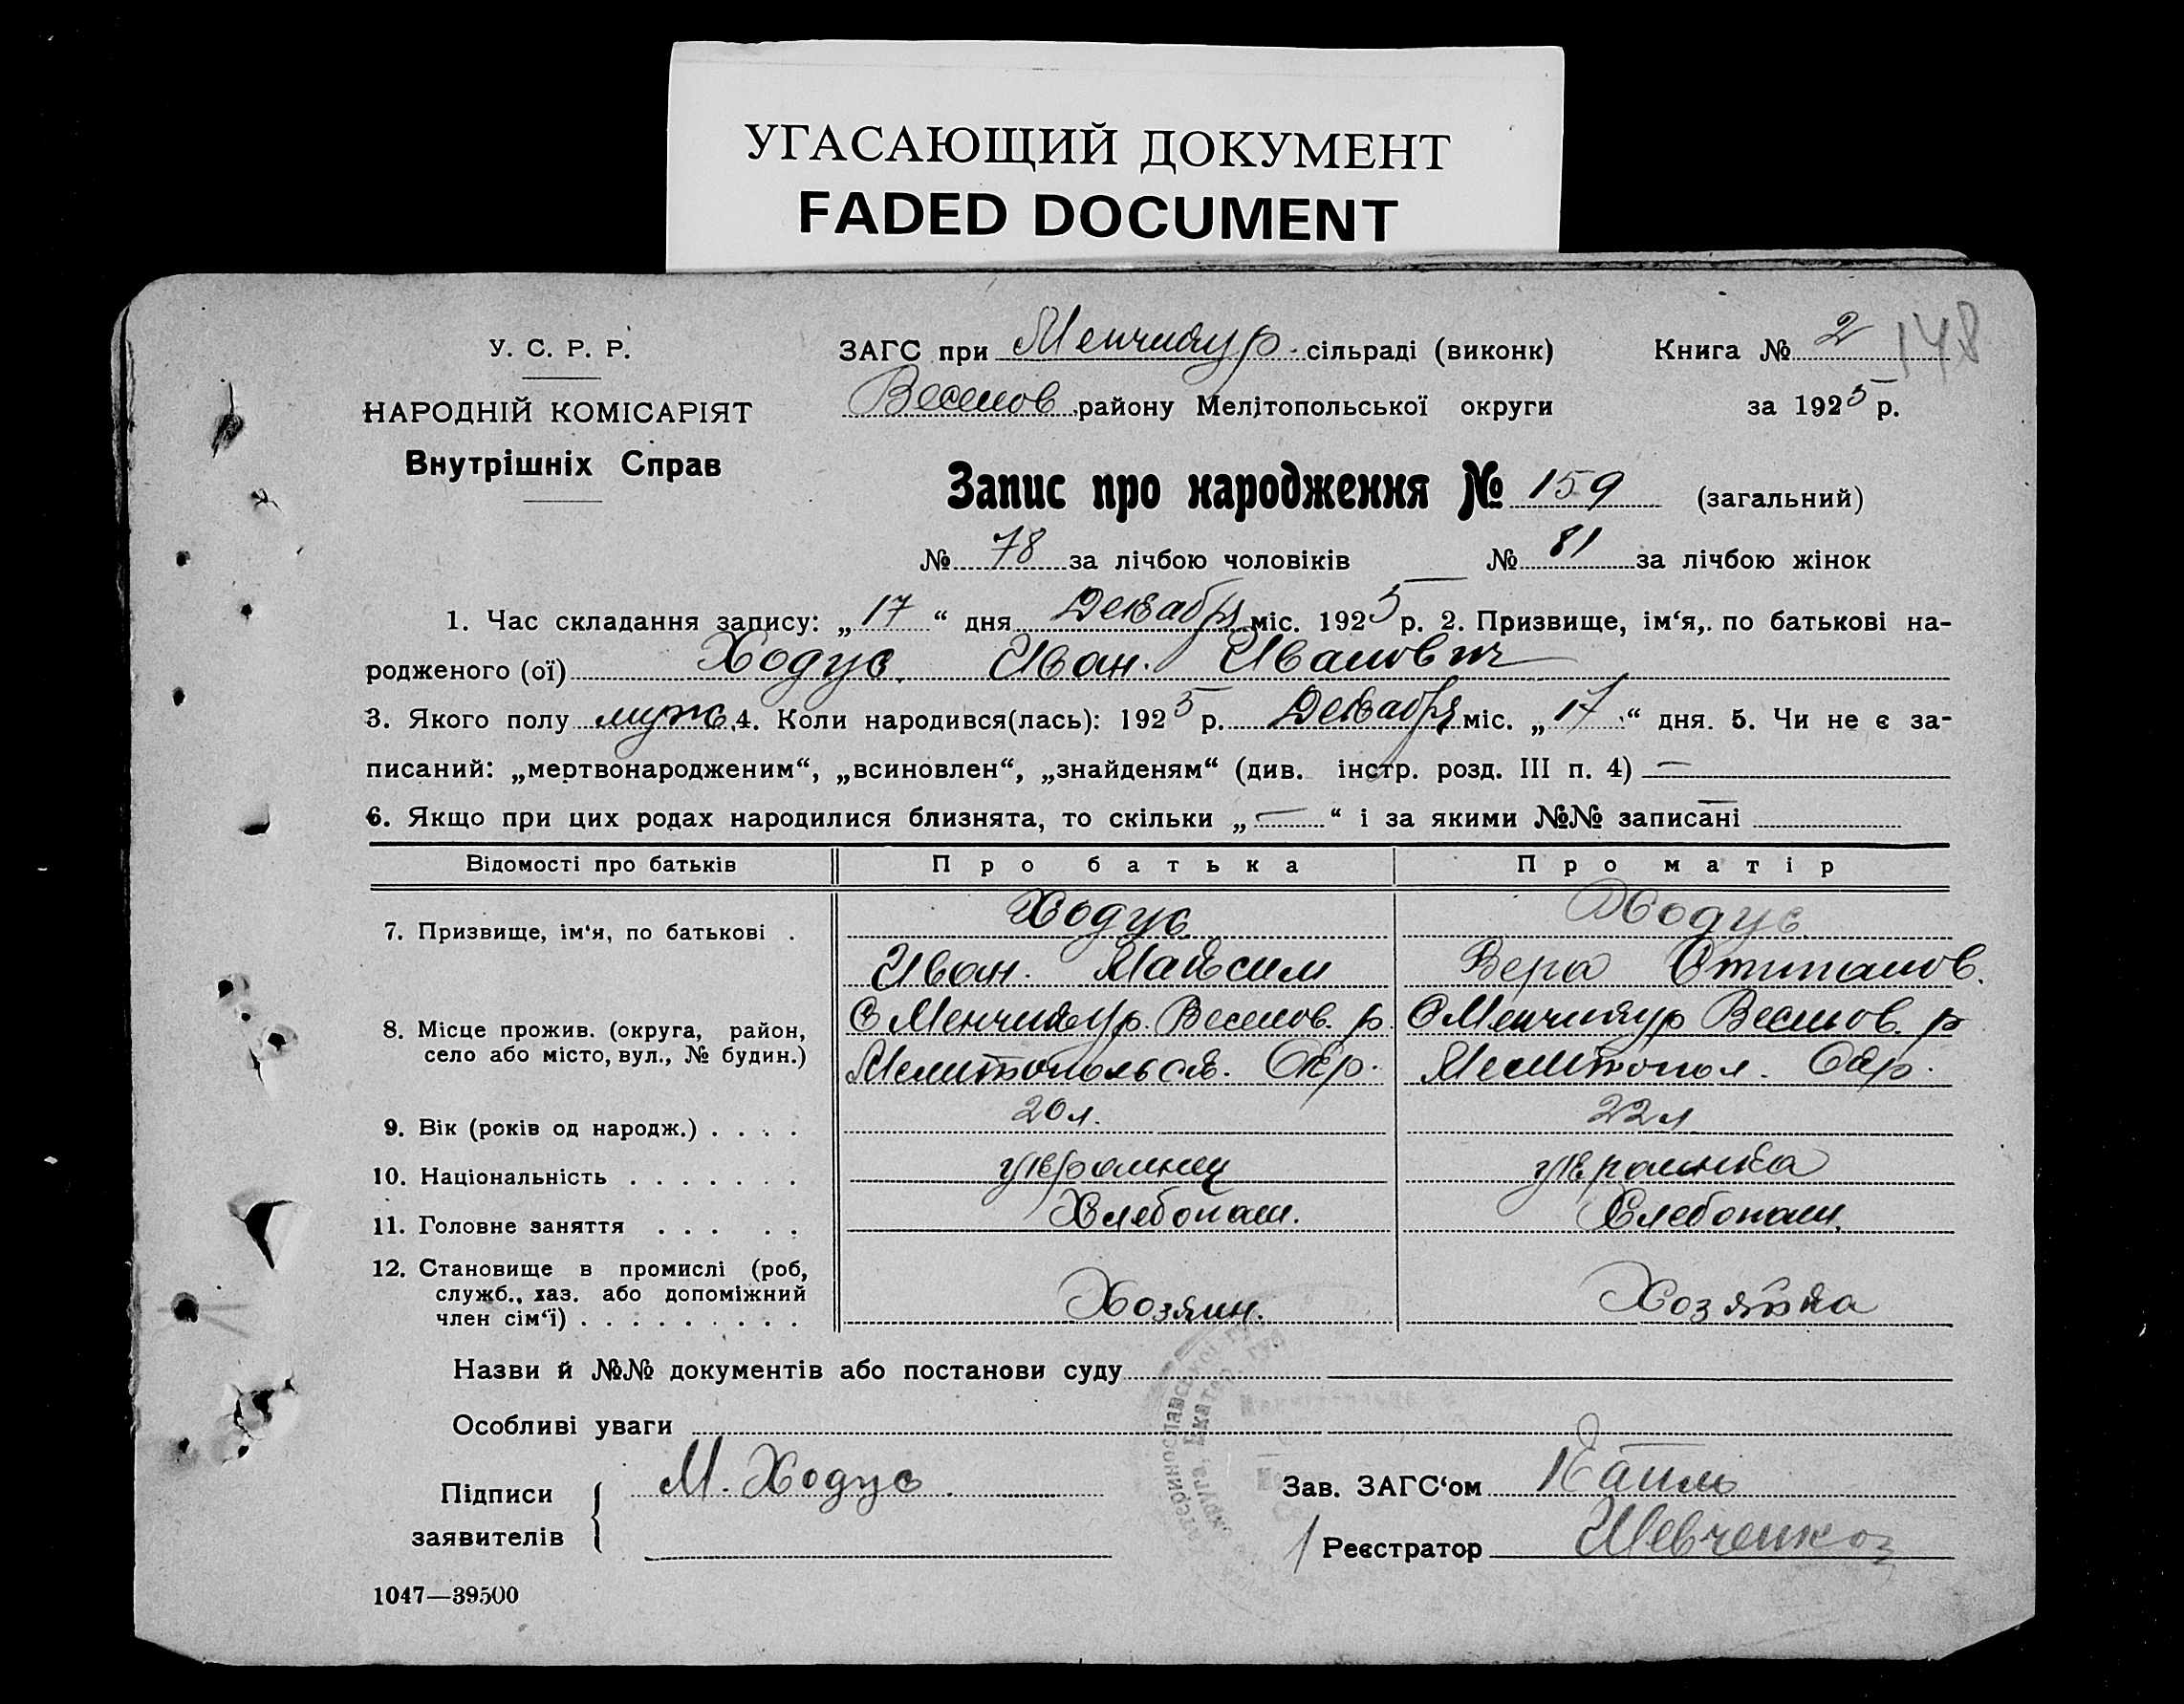 УГАСАЮЩИЙ ДОКУМЕНТ
FADED DOCUMENT
У. С. Р. Р.
НАРОДНІЙ КОМІСАРІЯТ
Внутрішніх Справ
ЗАГС при Менчикур. сільраді (виконк)
Веселов. району Мелітопольської округи
Книга № 2
148
за 1925 р.
Запис про народження № 159 (загальний)
№ 78 за лічбою чоловіків № 81 за лічбою жінок
1. Час складання запису: „17“ дня Декабря міс. 1925 р. 2. Призвище, ім‘я, по батькові на-
родженого (ої) Ходус Иван Иванович
3. Якого полу муж. 4. Коли народився(лась): 1925 р. Декабря міс. „17“ дня. 5. Чи не є за-
писаний: „мертвонародженим“, „всиновлен“, „знайденям“ (див. інстр. розд. III п. 4) —
6. Якщо при цих родах народилися близнята, то скільки „—“ і за якими №№ записані —
Відомості про батьків Про батька Про матір
7. Призвище, ім‘я, по батькові . Ходус Ходус
Иван Максим Вера Стипанов.
8. Місце прожив. (округа, район, село або місто, вул., № будин.) С Менчикур. Веселов. р С Менчикур Веселов. р
Мелитопольск. Окр. Мелитопол. Окр.
9. Вік (років од народж.) . . . . 20 л. 22 л
10. Національність . . . . . . . украинец украинка
11. Головне заняття . . . . . Хлебопаш. Хлебопаш.
12. Становище в промислі (роб,
служб., хаз. або допоміжний
член сім‘ї) . . . . . . . . . Хозяин. Хозяйка
Назви й №№ документів або постанови суду
Особливі уваги
Підписи
заявителів
М. Ходус
Зав. ЗАГС‘ом
Реєстратор Шевченко
1047—39500